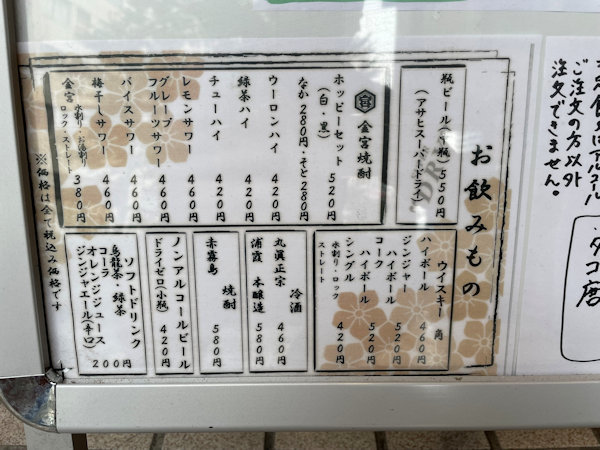 お飲みもの
瓶ビール(中瓶) 550円
(アサヒスーパードライ)
金宮焼酎
ホッピーセット 520円
(白・黒)
なか280円・そと280円
ウーロンハイ 420円
緑茶ハイ 420円
チューハイ 420円
レモンサワー 460円
グレープフルーツサワー 460円
バイスサワー 460円
梅干しサワー 460円
金宮 水割り・お湯割り ロック・ストレート 380円
ウイスキー 角
ハイボール 460円
ジンジャーハイボール 520円
コークハイボール 520円
シングル 420円
水割り・ロック
ストレート
冷酒
丸眞正宗 460円
浦霞 本醸造 580円
焼酎
赤霧島 580円
ノンアルコールビール
ドライゼロ(小瓶) 420円
ソフトドリンク
烏龍茶・緑茶
コーラ
オレンジジュース
ジンジャエール(辛口)
200円
※価格は全て税込み価格です
ご注文の方以外
注文できません。